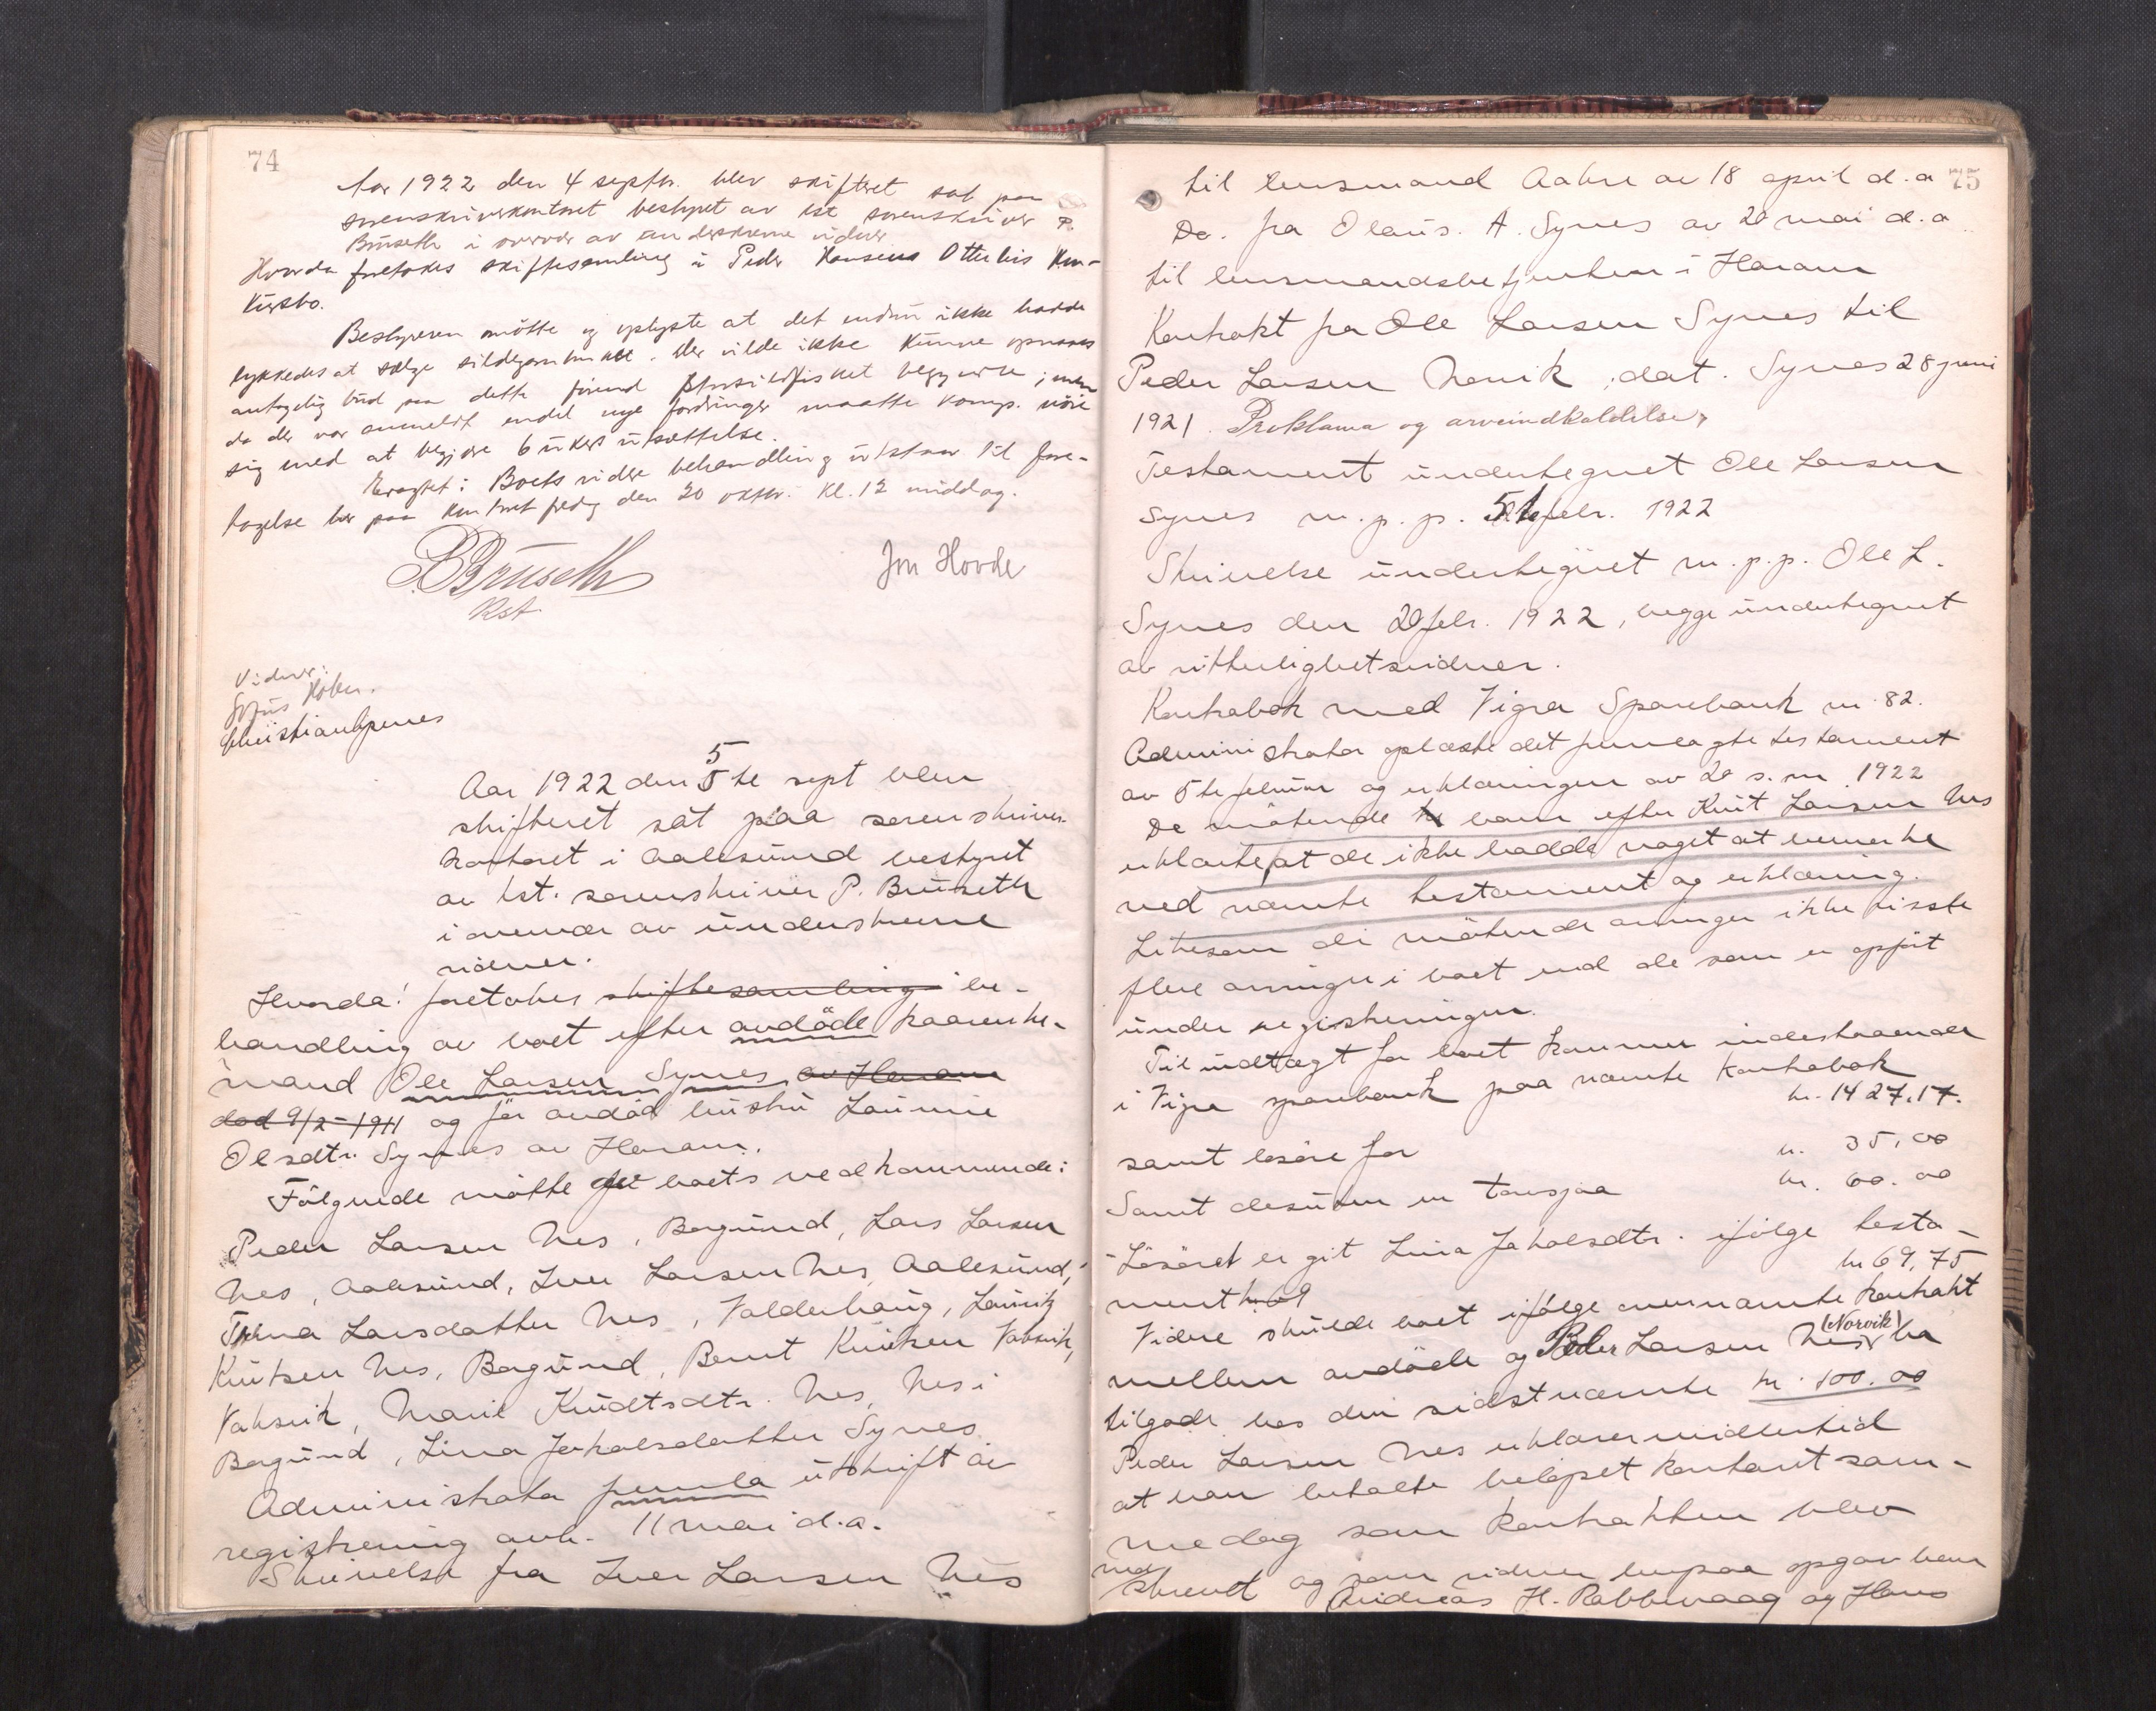 74
Aar 1922 den 4 septbr. blev skifteret sat paa
sorenskriverkontoret bestyret av kst sorenskriver P.
Brüseth i overvær av underskrevne vidner
Hvorda foretokes skiftesamling i Peder Hansens Otterleis kon-
kursbo.
Bestyreren mötte og oplyste at det endnu ikke hadde
lykkedes at sælge sildegarnbruket. Der vilde ikke kunne opnaaes
antagelig bud paa dette förend storsildfisket begynner; men
da der var anmeldt endel nye fordringer maatte komp. nöie
sig med at begjære 6 ukers utsættelse.
Eragtet: Boets videre behandling utstaar til fore-
tagelse her paa kontoret fredag den 20 oktbr. Kl. 12 middag.
P. Brüseth
Kst
Jon Hovde
Vidner:
Christian Gjenes
5
Aar 1922 den 5te sept blev
skifteret sat paa sorenskriver-
kontoret i Aalesund bestyret
av kst. sorenskriver P. Brüseth
i overvær av underskrevne
vidner.
Hvorda! foretokes skiftesamling i be-
handling av boet efter avdöde kaarenke-
mand Ole Larsen Synes av Haram
död 9/2-1911 og för avdöd hustru Laurine
Olsdtr. Synes av Haram.
Fölgende mötte for boets vedkommende:
Peder Larsen Nes, Borgund, Lars Larsen
Nes, Aalesund, Iver Larsen Nes Aalesund,
Larsdatter Nes, Valderhaug, Lauritz
Knutsen Nes, Borgund, Bernt Knutsen Vatsvik,
Vatsvik, Marie Knudtsdtr. Nes, Nes i
Borgund, Lina Jakobsdatter Synes
Administrator fremla utskrift av
registrering avh. 11 mai d.a.
Skrivelse fra Iver Larsen Nes
75
til lensmand Aakre av 18 april d.a
Do. fra Olaus. A. Synes av 20 mai d.a.
til lensmandsbetjenten i Haram
Kontrakt fra Ole Larsen Synes til
Peder Larsen Norvik, dat. Synes 28 juni
1921. Proklama og arveindkaldelse,
Testament undertegnet Ole Larsen
Synes m.p.p. 5te febr. 1922
Skrivelse undertegnet m.p.p. Ole L.
Synes den 20 febr. 1922, begge undertegnet
av vitterlighetsvidner.
Kontrabok med Vigra Sparebank nr. 82.
Administrator oplæste det fremlagte testament
av 5te februar og erklæringen av 20 s.m. 1922
De mötende barn efter Knut Larsen Nes
erklærte, at de ikke hadde noget at bemerke
ved nævnte testament og erklæring.
Likesom de mötende arvinger ikke visste
flere arvinger i boet end de som er opfört
under registreringen.
Til indtægt for boet kommer indestaaende
i Vigra sparebank paa nævnte kontrabok
kr. 1427.17.
samt lösöre for kr. 35,00
Samt desuten en torvsjaa kr. 60.00
Lösöret er git Lina Jakobsdtr. ifölge testa-
ment kr. 69 kr 69,75
Videre skulde boet ifölge ovennævnte kontrakt
mellem avdöde og Peder Larsen Nes (Norvik) ha
tilgode hos den sidstnævnte kr. 100.00
Peder Larsen Nes erklærer imidlertid
at han betalte belöpet kontant sam-
medag som kontrakten blev
ned
skrevet og som vidner herpaa opgav han
Andreas H. Rabbevaag og Hans